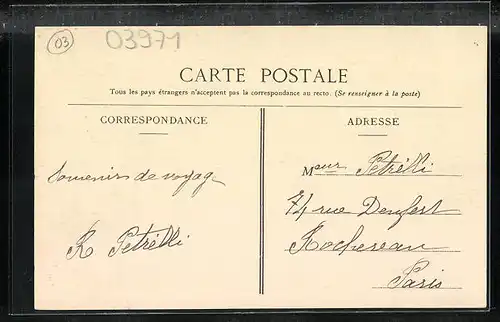 03
03971
CARTE POSTALE
Tous les pays étrangers n'acceptent pas la correspondance au recto. (Se renseigner à la poste)
CORRESPONDANCE
Souvenirs de voyage
R Petrelli
ADRESSE
Meur Petrelli
74 rue Denfert
Rochereau
Paris